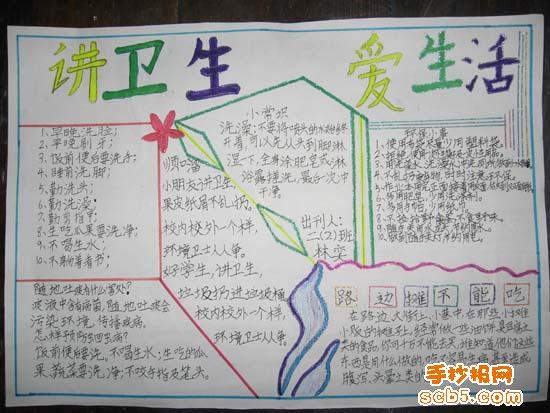 讲卫生
爱生活
1、早晚洗脸；
2、早晚刷牙；
3、饭前便后要洗手；
4、睡前洗脚；
5、勤洗头；
6、勤洗澡；
7、勤剪指甲；
8、生吃瓜果要洗净；
9、不喝生水；
10、不躺着看书；
小常识
洗澡：不要将喷头的水始终
开着，可以先从头到脚淋
湿一下，全身涂肥皂或沐
浴露搓洗，最后一次冲
干净。
顺口溜
小朋友讲卫生，
果皮纸屑不乱扔。
校内校外一个样，
环境卫士人人争。
好学生，讲卫生，
垃圾扔进垃圾桶
校内校外一个样，
环境卫士人人争。
出刊人：
二(2)班
林奕
环保小事
随地吐痰有什么害处?
痰液中含有病菌，随地吐痰会
污染环境，传播疾病。
怎样预防蛔虫病?
饭前便后要洗手。不喝生水；生吃的瓜
果、蔬菜要洗净；不咬手指及笔头。
路边摊不能吃
在路边、大街上、小巷中，在那些小摊
小贩的摊子上，经常做一些油饼、臭豆腐之
类的食品，你可千万不能去买，谁知道他们这些
东西是用什么做的，吃了容易生病，甚至造成
腹泻、头晕之类的
手抄报网
scb5.com